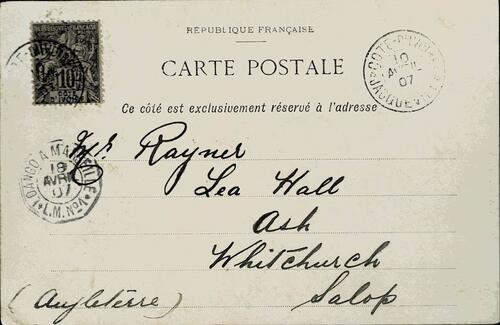 RÉPUBLIQUE FRANÇAISE
CARTE POSTALE
Ce côté est exclusivement réservé à l'adresse
10
CÔTE-D'IVOIRE
10
AVRIL
07
JACQUEVILLE
LOANGO A MARSEILLE
18
AVRIL
07
L.M. Nº
Mr Rayner
Lea Hall
Ash
Whitchurch
Salop
(Angleterre)